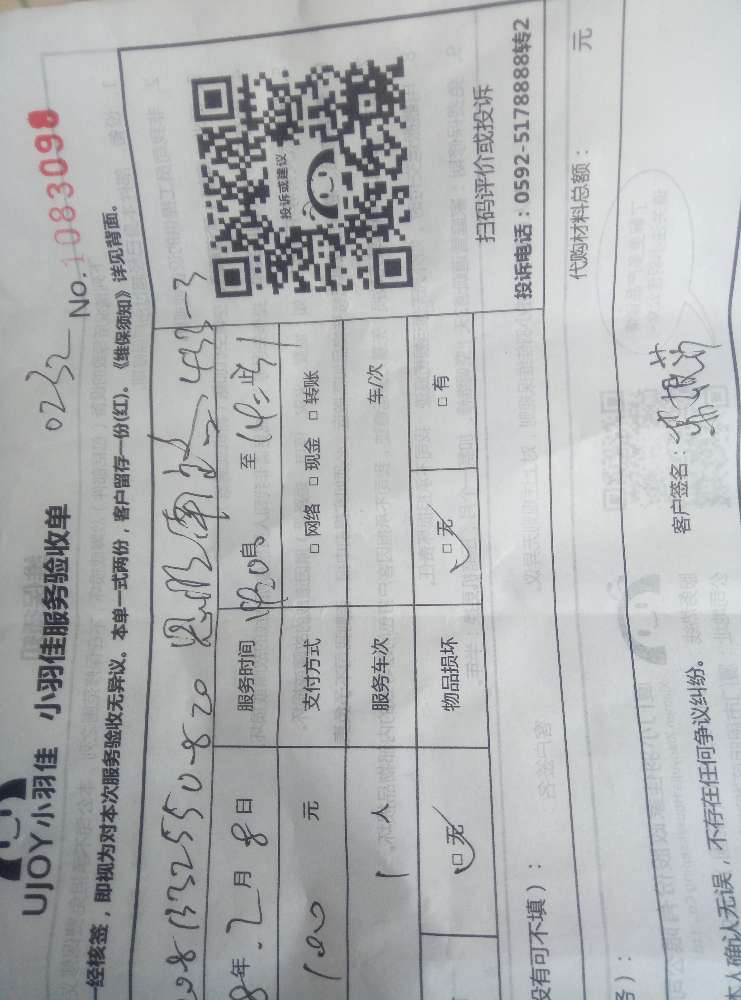 UJOY小羽佳 小羽佳服务验收单 0232 No.1083098
一经核签，即视为对本次服务验收无异议。本单一式两份，客户留存一份(红)。《维保须知》详见背面。
13325550820
433-3
年 2 月 8 日 服务时间 至
100 元 支付方式 □ 网络 □ 现金 □ 转账
1 人 服务车次 车/次
□ 无 物品损坏 □ 无 □ 有
投诉或建议
扫码评价或投诉
投诉电话：0592-5178888转2
没有可不填)：
务)： 代购材料总额： 元
本人确认无误，不存在任何争议纠纷。 客户签名：